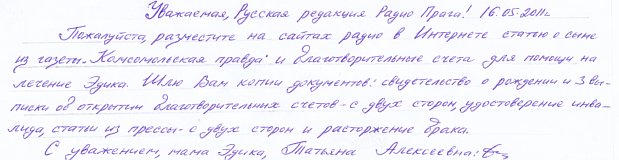 Уважаемая, Русская редакция Радио Прага! 16.05.2011г.
Пожалуйста, разместите на сайтах радио в Интернете статью о сыне
из газеты "Комсомольская правда" и благотворительные счета для помощи на
лечение Эдика. Шлю Вам копии документов: свидетельство о рождении и 3 вы-
писки об открытии благотворительных счетов - с двух сторон, удостоверение инва-
лида, статьи из прессы - с двух сторон и расторжение брака.
С уважением, мама Эдика, Татьяна Алексеевна: